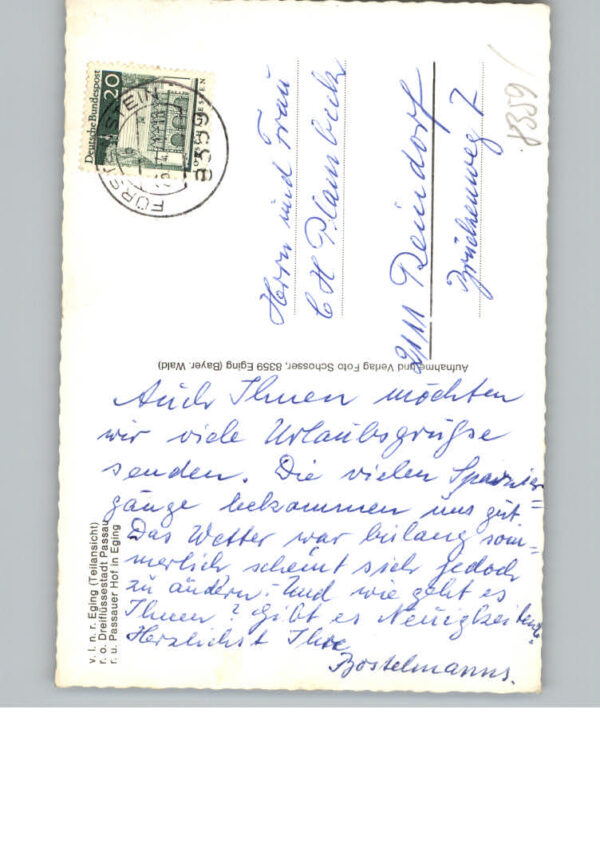 Deutsche Bundespost
20
8359
8359
Herrn und Frau
C H Plambeck
2111 Deindorf
Brückenweg 7
Aufnahme und Verlag Foto Schosser, 8359 Eging (Bayer. Wald)
Auch Ihnen möchten
wir viele Urlaubsgrüße
senden. Die vielen Spazier=
gänge bekommen uns gut.
Das Wetter war bislang som=
merlich scheint sich jedoch
zu ändern. Und wie geht es
Ihnen? Gibt es Neuigkeiten?
Herzlichst Ihre
Bostelmanns.
v. l. n. r. Eging (Teilansicht)
r. o. Dreiflüssestadt Passau
r. u. Passauer Hof in Eging